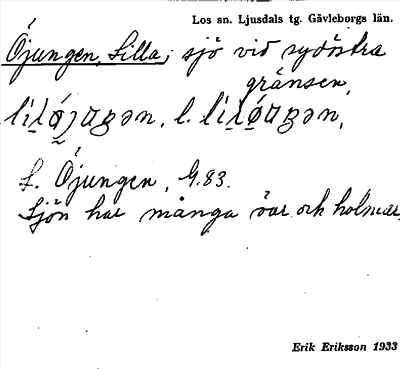 Los sn. Ljusdals tg. Gävleborgs län.
Öjungen, Lilla; sjö vid sydöstra
gränsen,
l. Öjungen, G. 83.
Sjön har många öar och holmar.
Erik Eriksson 1933